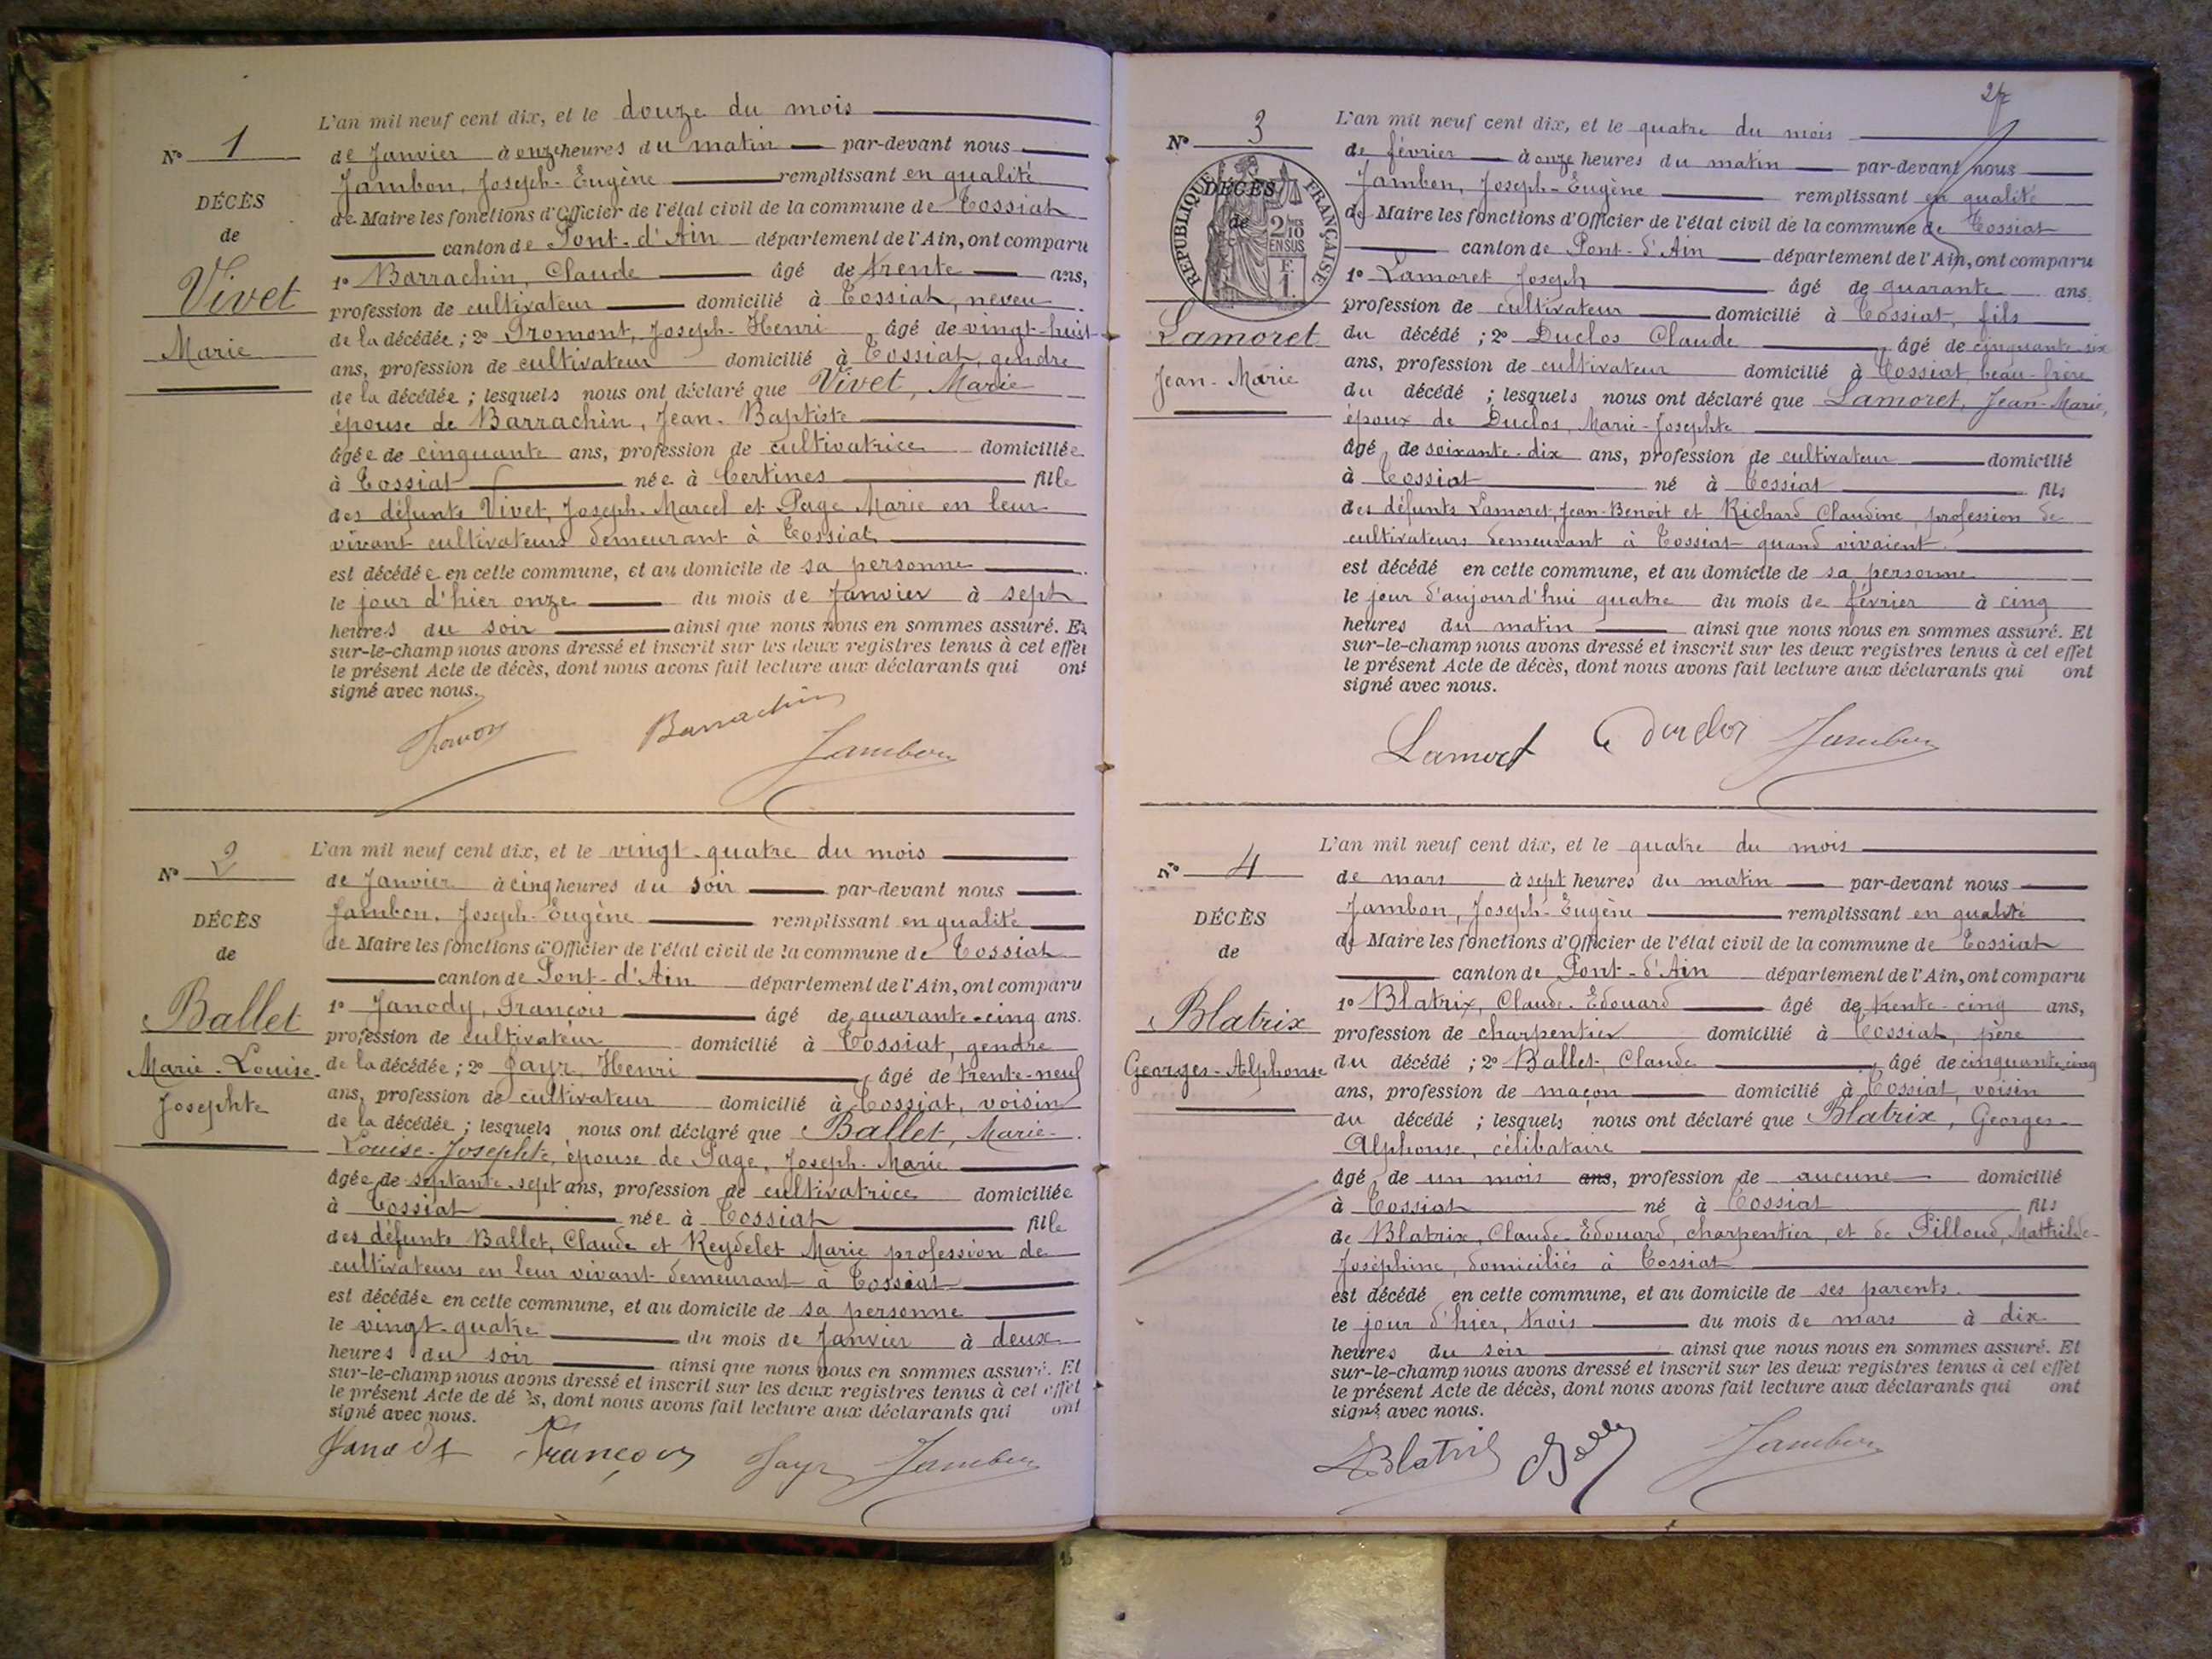 N° 1
DÉCÈS
de
Vivet
Marie
L'an mil neuf cent dix, et le douze du mois
de Janvier à onze heures du matin par-devant nous
Jambon, Joseph-Eugène remplissant en qualité
de Maire les fonctions d'Officier de l'état civil de la commune de Tossiat
canton de Pont-d'Ain département de l'Ain, ont comparu
1° Barrachin, Claude âgé de trente ans,
profession de cultivateur domicilié à Tossiat, neveu
de la décédée ; 2° Promont, Joseph-Henri âgé de vingt-huit
ans, profession de cultivateur domicilié à Tossiat, gendre
de la décédée ; lesquels nous ont déclaré que Vivet, Marie
épouse de Barrachin, Jean-Baptiste
âgée de cinquante ans, profession de cultivatrice domiciliée
à Tossiat née à Certines fille
des défunts Vivet, Joseph-Marcel et Page Marie en leur
vivant cultivateurs demeurant à Tossiat
est décédée en cette commune, et au domicile de sa personne
le jour d'hier onze du mois de Janvier à sept
heures du soir ainsi que nous nous en sommes assuré. Et
sur-le-champ nous avons dressé et inscrit sur les deux registres tenus à cet effet
le présent Acte de décès, dont nous avons fait lecture aux déclarants qui ont
signé avec nous.
Barrachin
Jambon
N° 2
DÉCÈS
de
Ballet
Marie-Louise-
Josephte
L'an mil neuf cent dix, et le vingt-quatre du mois
de Janvier à cinq heures du soir par-devant nous
Jambon, Joseph-Eugène remplissant en qualité
de Maire les fonctions d'Officier de l'état civil de la commune de Tossiat
canton de Pont-d'Ain département de l'Ain, ont comparu
1° Janody, François âgé de quarante-cinq ans.
profession de cultivateur domicilié à Tossiat, gendre
de la décédée ; 2° Jayr, Henri âgé de trente-neuf
ans, profession de cultivateur domicilié à Tossiat, voisin
de la décédée ; lesquels nous ont déclaré que Ballet, Marie-
Louise-Josephte, épouse de Page, Joseph-Marie
âgée de septante-sept ans, profession de cultivatrice domiciliée
à Tossiat née à Tossiat fille
des défunts Ballet, Claude et Reydelet Marie profession de
cultivateurs en leur vivant demeurant à Tossiat
est décédée en cette commune, et au domicile de sa personne
le vingt-quatre du mois de Janvier à deux
heures du soir ainsi que nous nous en sommes assuré. Et
sur-le-champ nous avons dressé et inscrit sur les deux registres tenus à cet effet
le présent Acte de décès, dont nous avons fait lecture aux déclarants qui ont
signé avec nous.
Janody François Jayr Jambon
27
N° 3
DÉCÈS
de
RÉPUBLIQUE FRANÇAISE
2/10
EN SUS
F.
1.
Lamoret
Jean-Marie
L'an mil neuf cent dix, et le quatre du mois
de février à onze heures du matin par-devant nous
Jambon, Joseph-Eugène remplissant en qualité
de Maire les fonctions d'Officier de l'état civil de la commune de Tossiat
canton de Pont-d'Ain département de l'Ain, ont comparu
1° Lamoret Joseph âgé de quarante ans,
profession de cultivateur domicilié à Tossiat, fils
du décédé ; 2° Duclos Claude âgé de cinquante-six
ans, profession de cultivateur domicilié à Tossiat, beau-frère
du décédé ; lesquels nous ont déclaré que Lamoret, Jean-Marie,
époux de Duclos, Marie-Josephte
âgé de soixante-dix ans, profession de cultivateur domicilié
à Tossiat né à Tossiat fils
des défunts Lamoret, Jean-Benoit et Richard Claudine, profession de
cultivateurs demeurant à Tossiat quand vivaient.
est décédé en cette commune, et au domicile de sa personne
le jour d'aujourd'hui quatre du mois de février à cinq
heures du matin ainsi que nous nous en sommes assuré. Et
sur-le-champ nous avons dressé et inscrit sur les deux registres tenus à cet effet
le présent Acte de décès, dont nous avons fait lecture aux déclarants qui ont
signé avec nous.
Lamoret C Duclos Jambon
N° 4
DÉCÈS
de
Blatrix
Georges-Alphonse
L'an mil neuf cent dix, et le quatre du mois
de mars à sept heures du matin par-devant nous
Jambon, Joseph-Eugène remplissant en qualité
de Maire les fonctions d'Officier de l'état civil de la commune de Tossiat
canton de Pont-d'Ain département de l'Ain, ont comparu
1° Blatrix, Claude-Edouard âgé de trente-cinq ans,
profession de charpentier domicilié à Tossiat, père
du décédé ; 2° Ballet, Claude âgé de cinquante-cinq
ans, profession de maçon domicilié à Tossiat, voisin
du décédé ; lesquels nous ont déclaré que Blatrix, Georges-
Alphonse, célibataire
âgé de un mois ans, profession de aucune domicilié
à Tossiat né à Tossiat fils
de Blatrix, Claude-Edouard, charpentier, et de Pilloud, Mathilde-
Joséphine, domiciliés à Tossiat
est décédé en cette commune, et au domicile de ses parents.
le jour d'hier, trois du mois de mars à dix
heures du soir ainsi que nous nous en sommes assuré. Et
sur-le-champ nous avons dressé et inscrit sur les deux registres tenus à cet effet
le présent Acte de décès, dont nous avons fait lecture aux déclarants qui ont
signé avec nous.
Blatrix Jambon